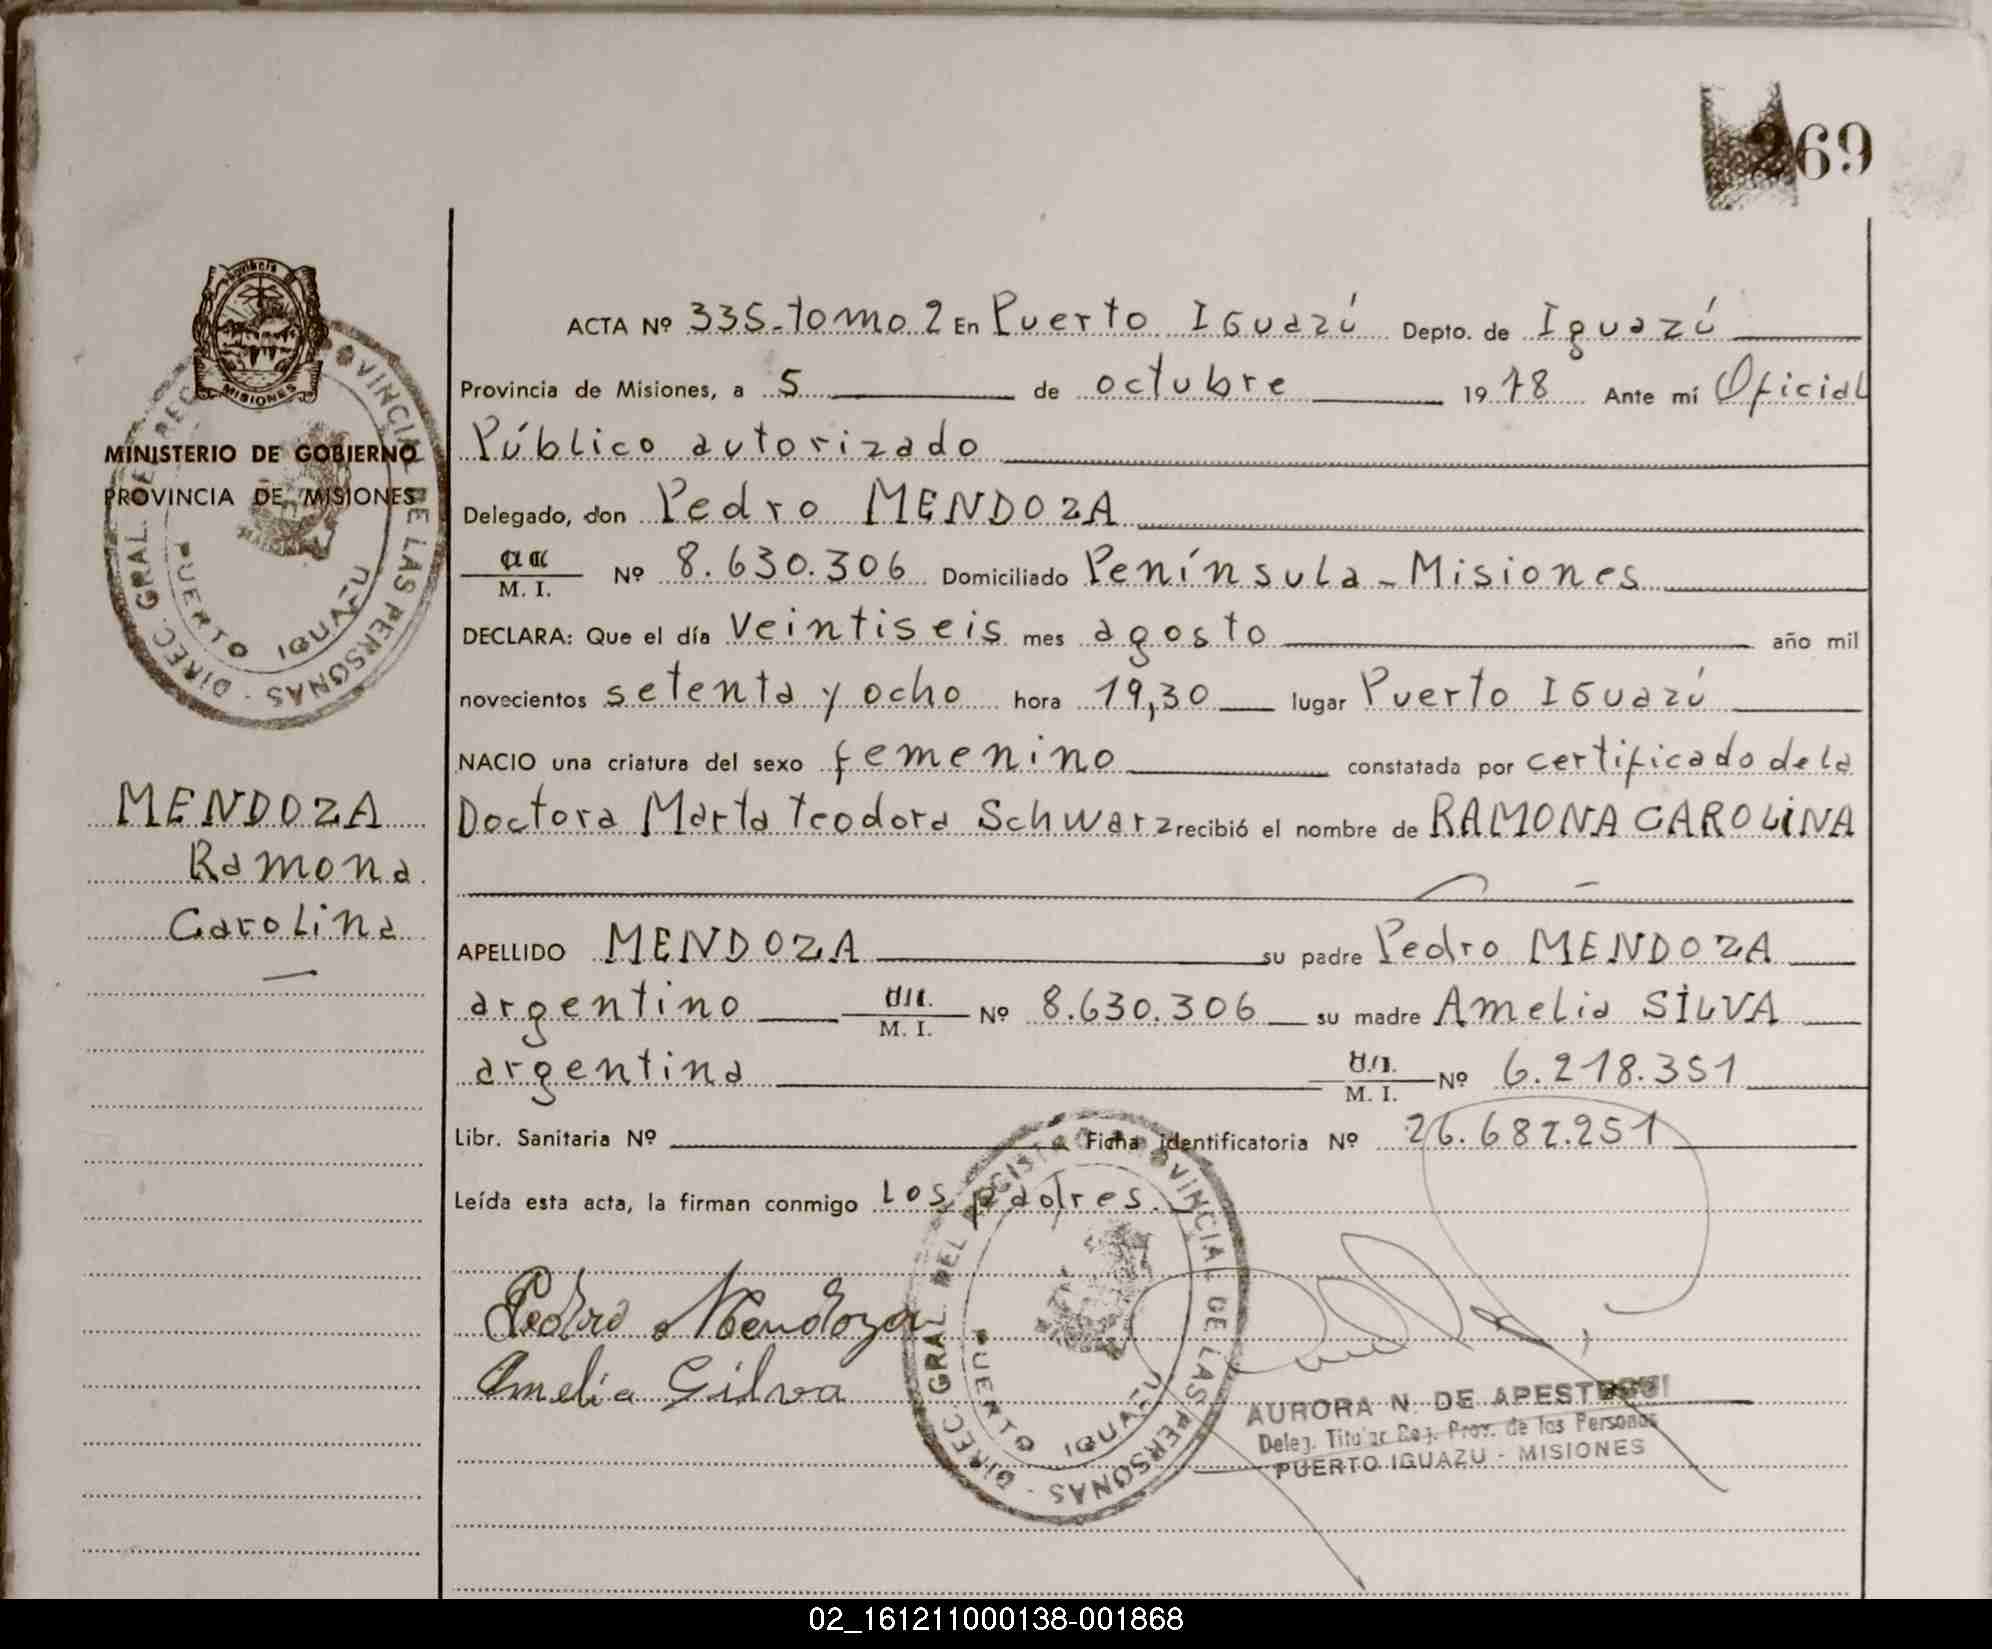 269
ACTA Nº 335-tomo 2 En Puerto IGuazú Depto. de Iguazú
Provincia de Misiones, a 5 de octubre 1978 Ante mí Oficial
Público autorizado
MINISTERIO DE GOBIERNO
PROVINCIA DE MISIONES
MISIONES
DIREC. GRAL. DEL REGISTRO PROVINCIAL DE LAS PERSONAS
PUERTO IGUAZU
Delegado, don Pedro MENDOZA
M. I. Nº 8.630.306 Domiciliado Península - Misiones
DECLARA: Que el día veintiseis mes agosto año mil
novecientos setenta y ocho hora 19,30 lugar Puerto IGuazú
NACIO una criatura del sexo femenino constatada por certificado de la
Doctora Marta teodora Schwarz recibió el nombre de RAMONA CAROLINA
MENDOZA
Ramona
Carolina
APELLIDO MENDOZA su padre Pedro MENDOZA
argentino M. I. Nº 8.630.306 su madre Amelia SILVA
argentina M. I. Nº 6.218.351
Libr. Sanitaria Nº Ficha identificatoria Nº 26.687.251
Leída esta acta, la firman conmigo los padres.
Pedro Mendoza
Amelia Silva
DIREC. GRAL. DEL REGISTRO PROVINCIAL DE LAS PERSONAS
PUERTO IGUAZU
AURORA N. DE APESTEGUI
Deleg. Titular Reg. Prov. de las Personas
PUERTO IGUAZU - MISIONES
02_161211000138-001868